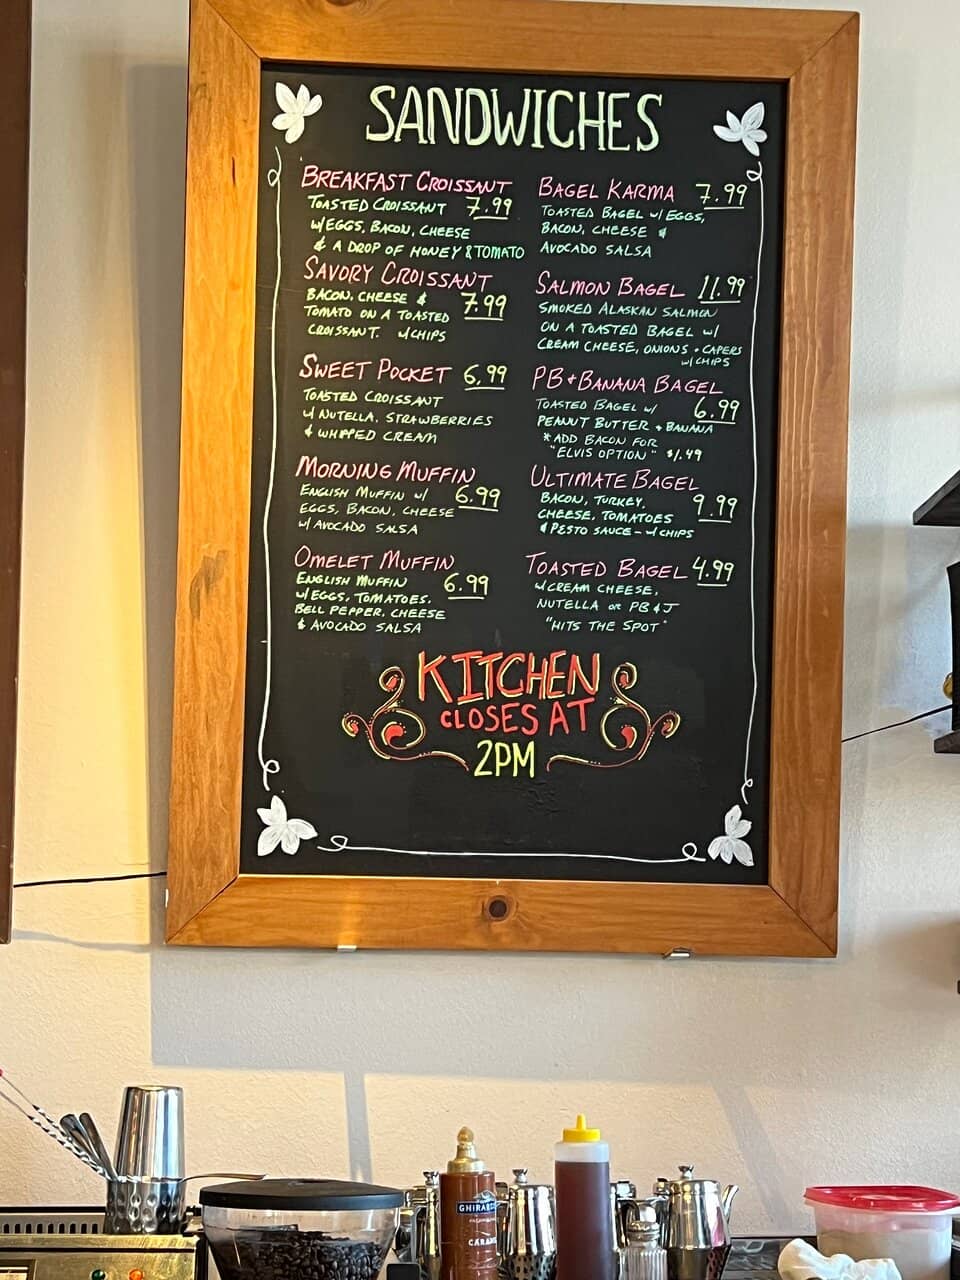 SANDWICHES
BREAKFAST CROISSANT
TOASTED CROISSANT 7.99
W/EGGS, BACON, CHEESE
& A DROP OF HONEY & TOMATO
SAVORY CROISSANT
BACON, CHEESE & 7.99
TOMATO ON A TOASTED
CROISSANT. W/CHIPS
SWEET POCKET 6.99
TOASTED CROISSANT
W/ NUTELLA, STRAWBERRIES
& WHIPPED CREAM
MORNING MUFFIN
ENGLISH MUFFIN W/ 6.99
EGGS, BACON, CHEESE
W/ AVOCADO SALSA
OMELET MUFFIN
ENGLISH MUFFIN 6.99
W/EGGS, TOMATOES,
BELL PEPPER, CHEESE
& AVOCADO SALSA
BAGEL KARMA 7.99
TOASTED BAGEL W/ EGGS,
BACON, CHEESE &
AVOCADO SALSA
SALMON BAGEL 11.99
SMOKED ALASKAN SALMON
ON A TOASTED BAGEL W/
CREAM CHEESE, ONIONS + CAPERS
W/ CHIPS
PB+BANANA BAGEL
TOASTED BAGEL W/ 6.99
PEANUT BUTTER + BANANA
*ADD BACON FOR
"ELVIS OPTION" $1.49
ULTIMATE BAGEL
BACON, TURKEY, 9.99
CHEESE, TOMATOES
& PESTO SAUCE - W/ CHIPS
TOASTED BAGEL 4.99
W/CREAM CHEESE,
NUTELLA OR PB & J
"HITS THE SPOT"
KITCHEN
CLOSES AT
2PM